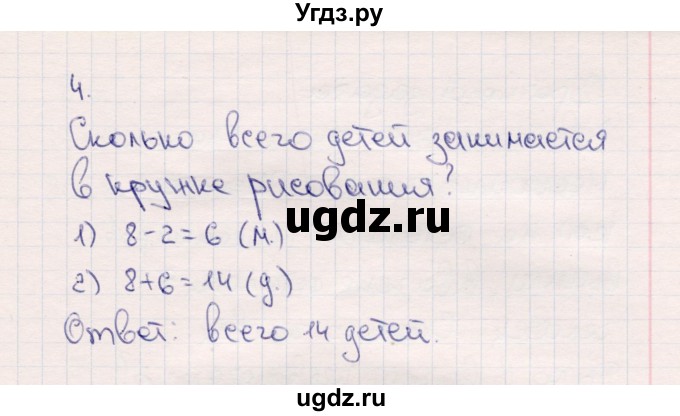 Угдз.ру
4.
Сколько всего детей занимается
в кружке рисования?
1) 8-2=6 (м.)
ugdz.ru
2) 8+6=14 (д.)
Ответ: всего 14 детей.
ugdz.ru